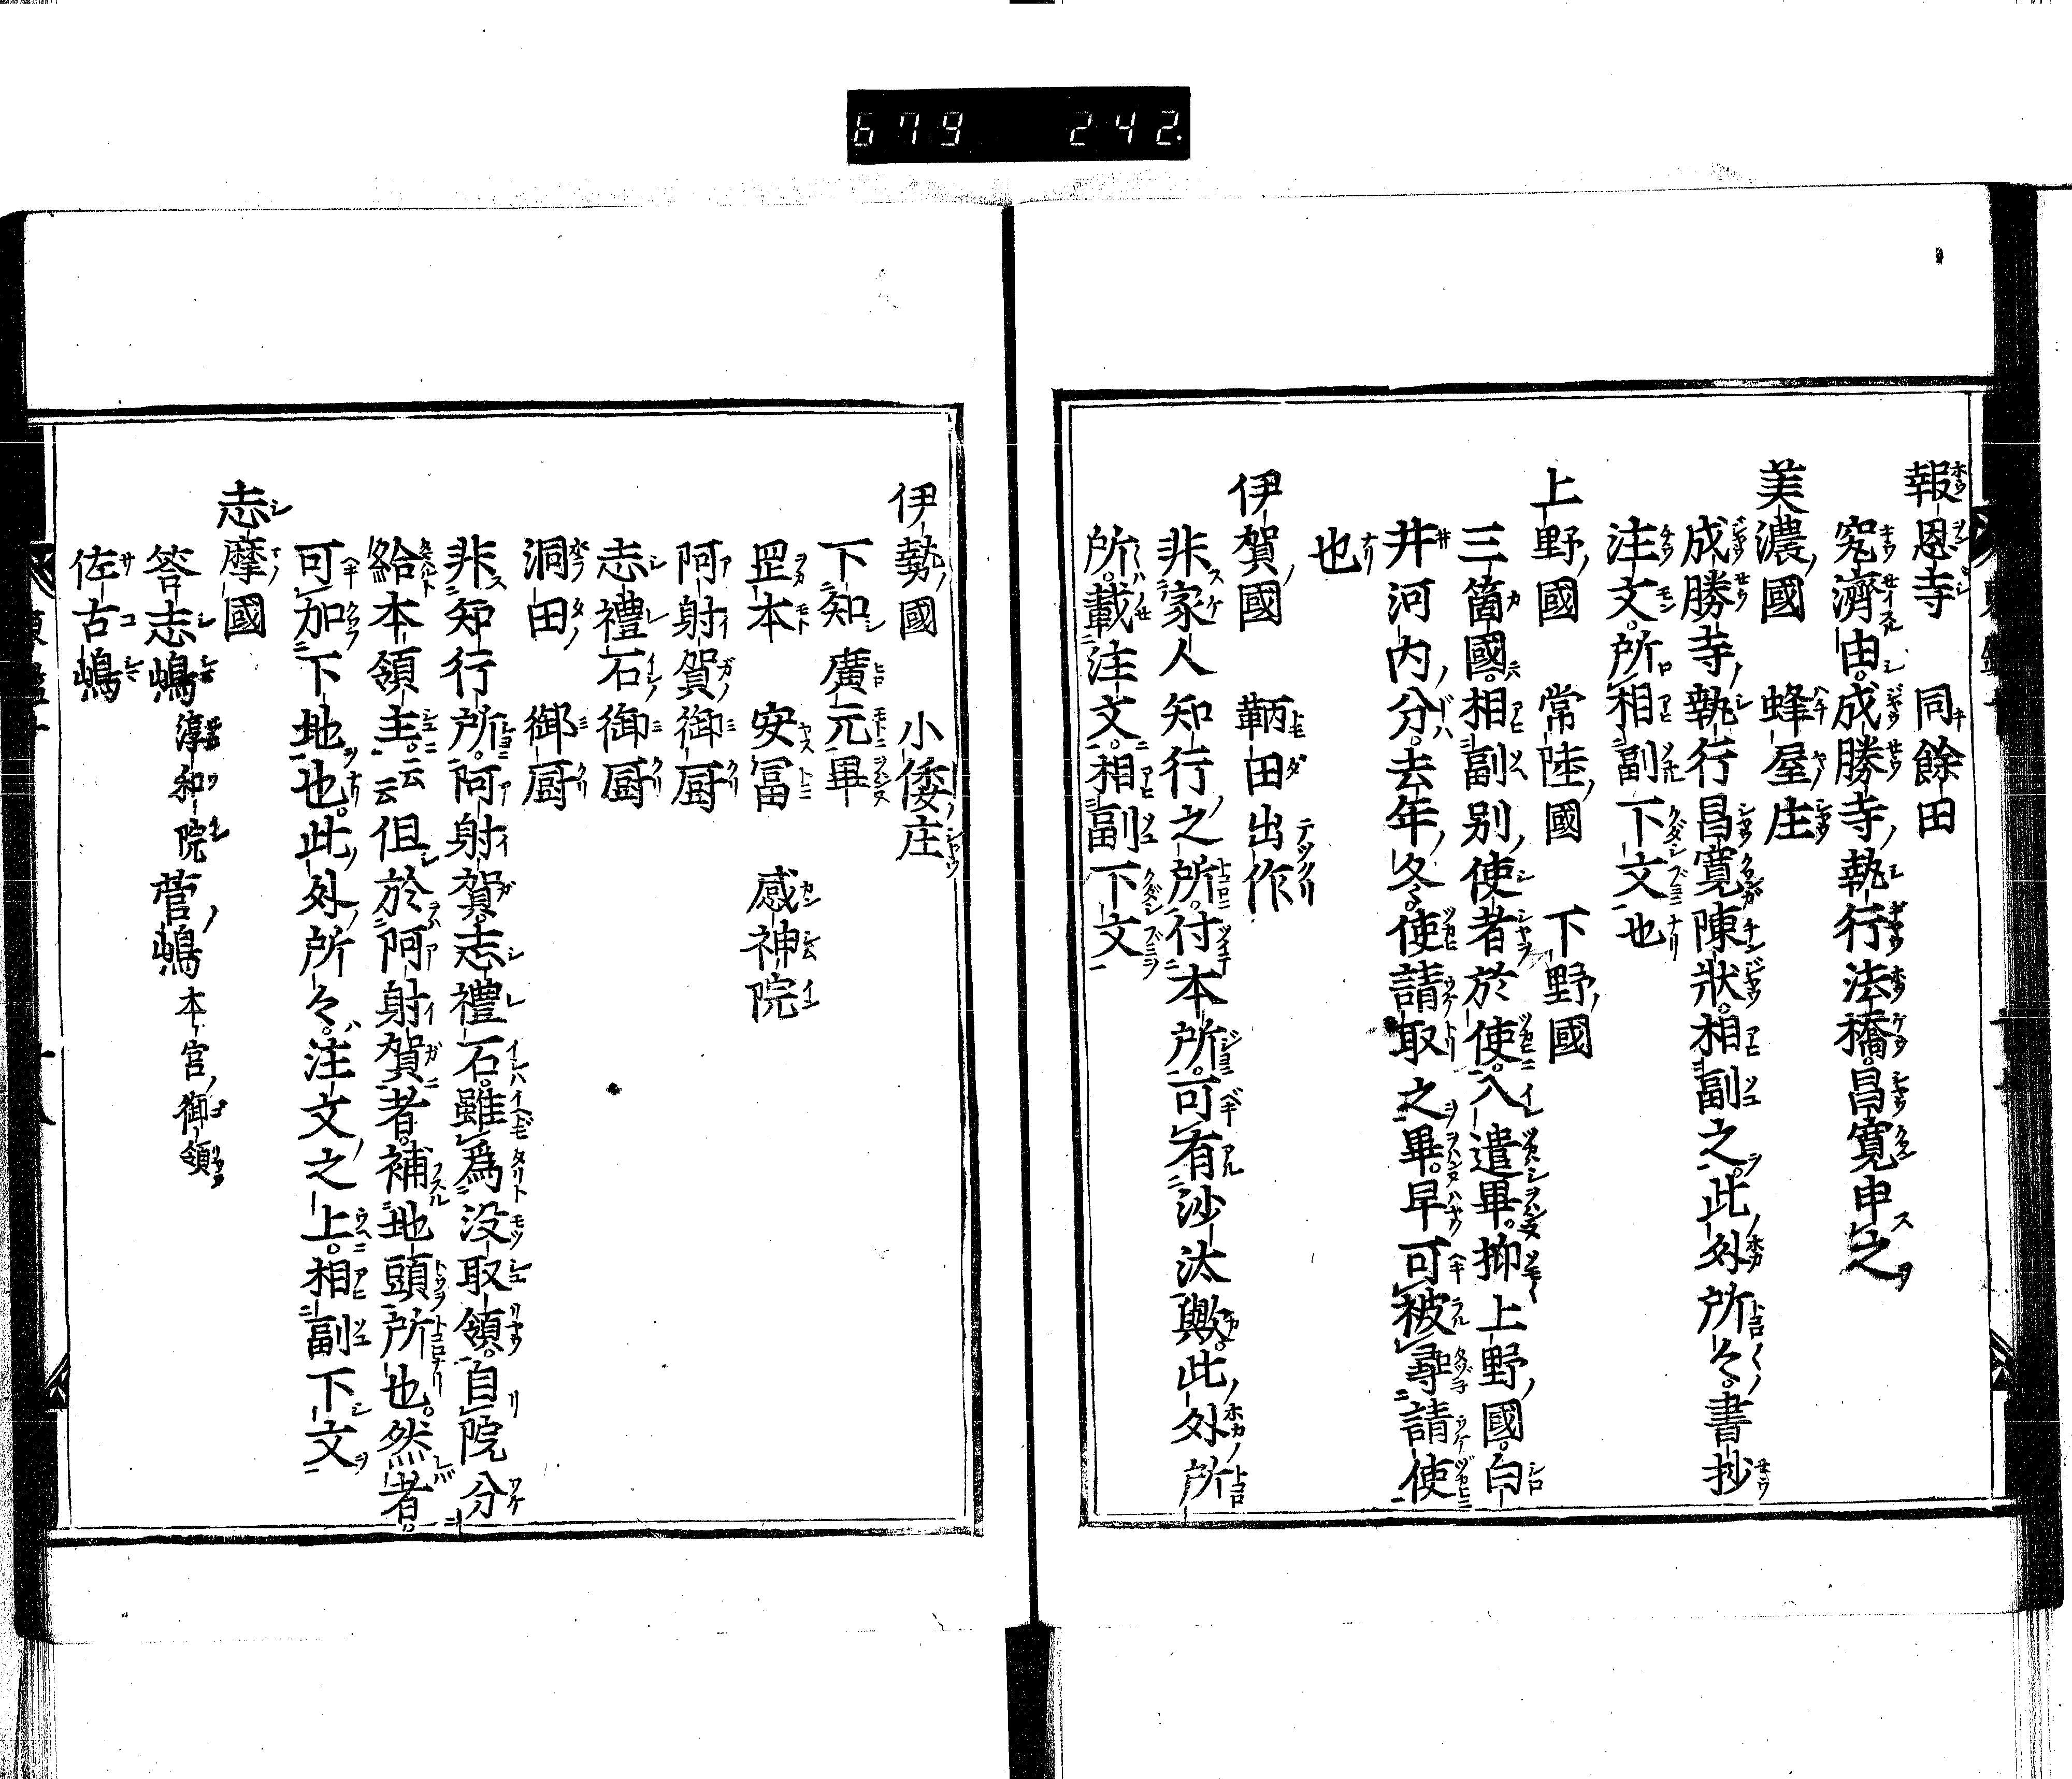 679 242.
報恩寺 同餘田
究濟由。成勝寺執行法橋。昌寛申之
美濃國 蜂屋庄
成勝寺執行昌寛陳狀。相副之。此外所々。書抄
注文。所相副下文也
上野國 常陸國 下野國
三箇國。相副别使者於使。入遣畢。抑上野國。白
井河内分。去年冬。使請取之畢。早可被尋請使
也
伊賀國 鞆田出作
非家人知行之所。付本所。可有沙汰歟。此外所
所。載注文。相副下文
伊勢國 小倭庄
下知廣元畢
罡本 安冨 感神院
阿射賀御厨
志禮石御厨
洞田 御厨
非知行所。阿射賀。志禮石。雖爲没取領。自院分
給本領主。云云但於阿射賀者。補地頭所也。然者。
可加下地也。此外所々。注文之上。相副下文
志摩國
荅志嶋 淳和院 菅嶋 本宮御領
佐古嶋